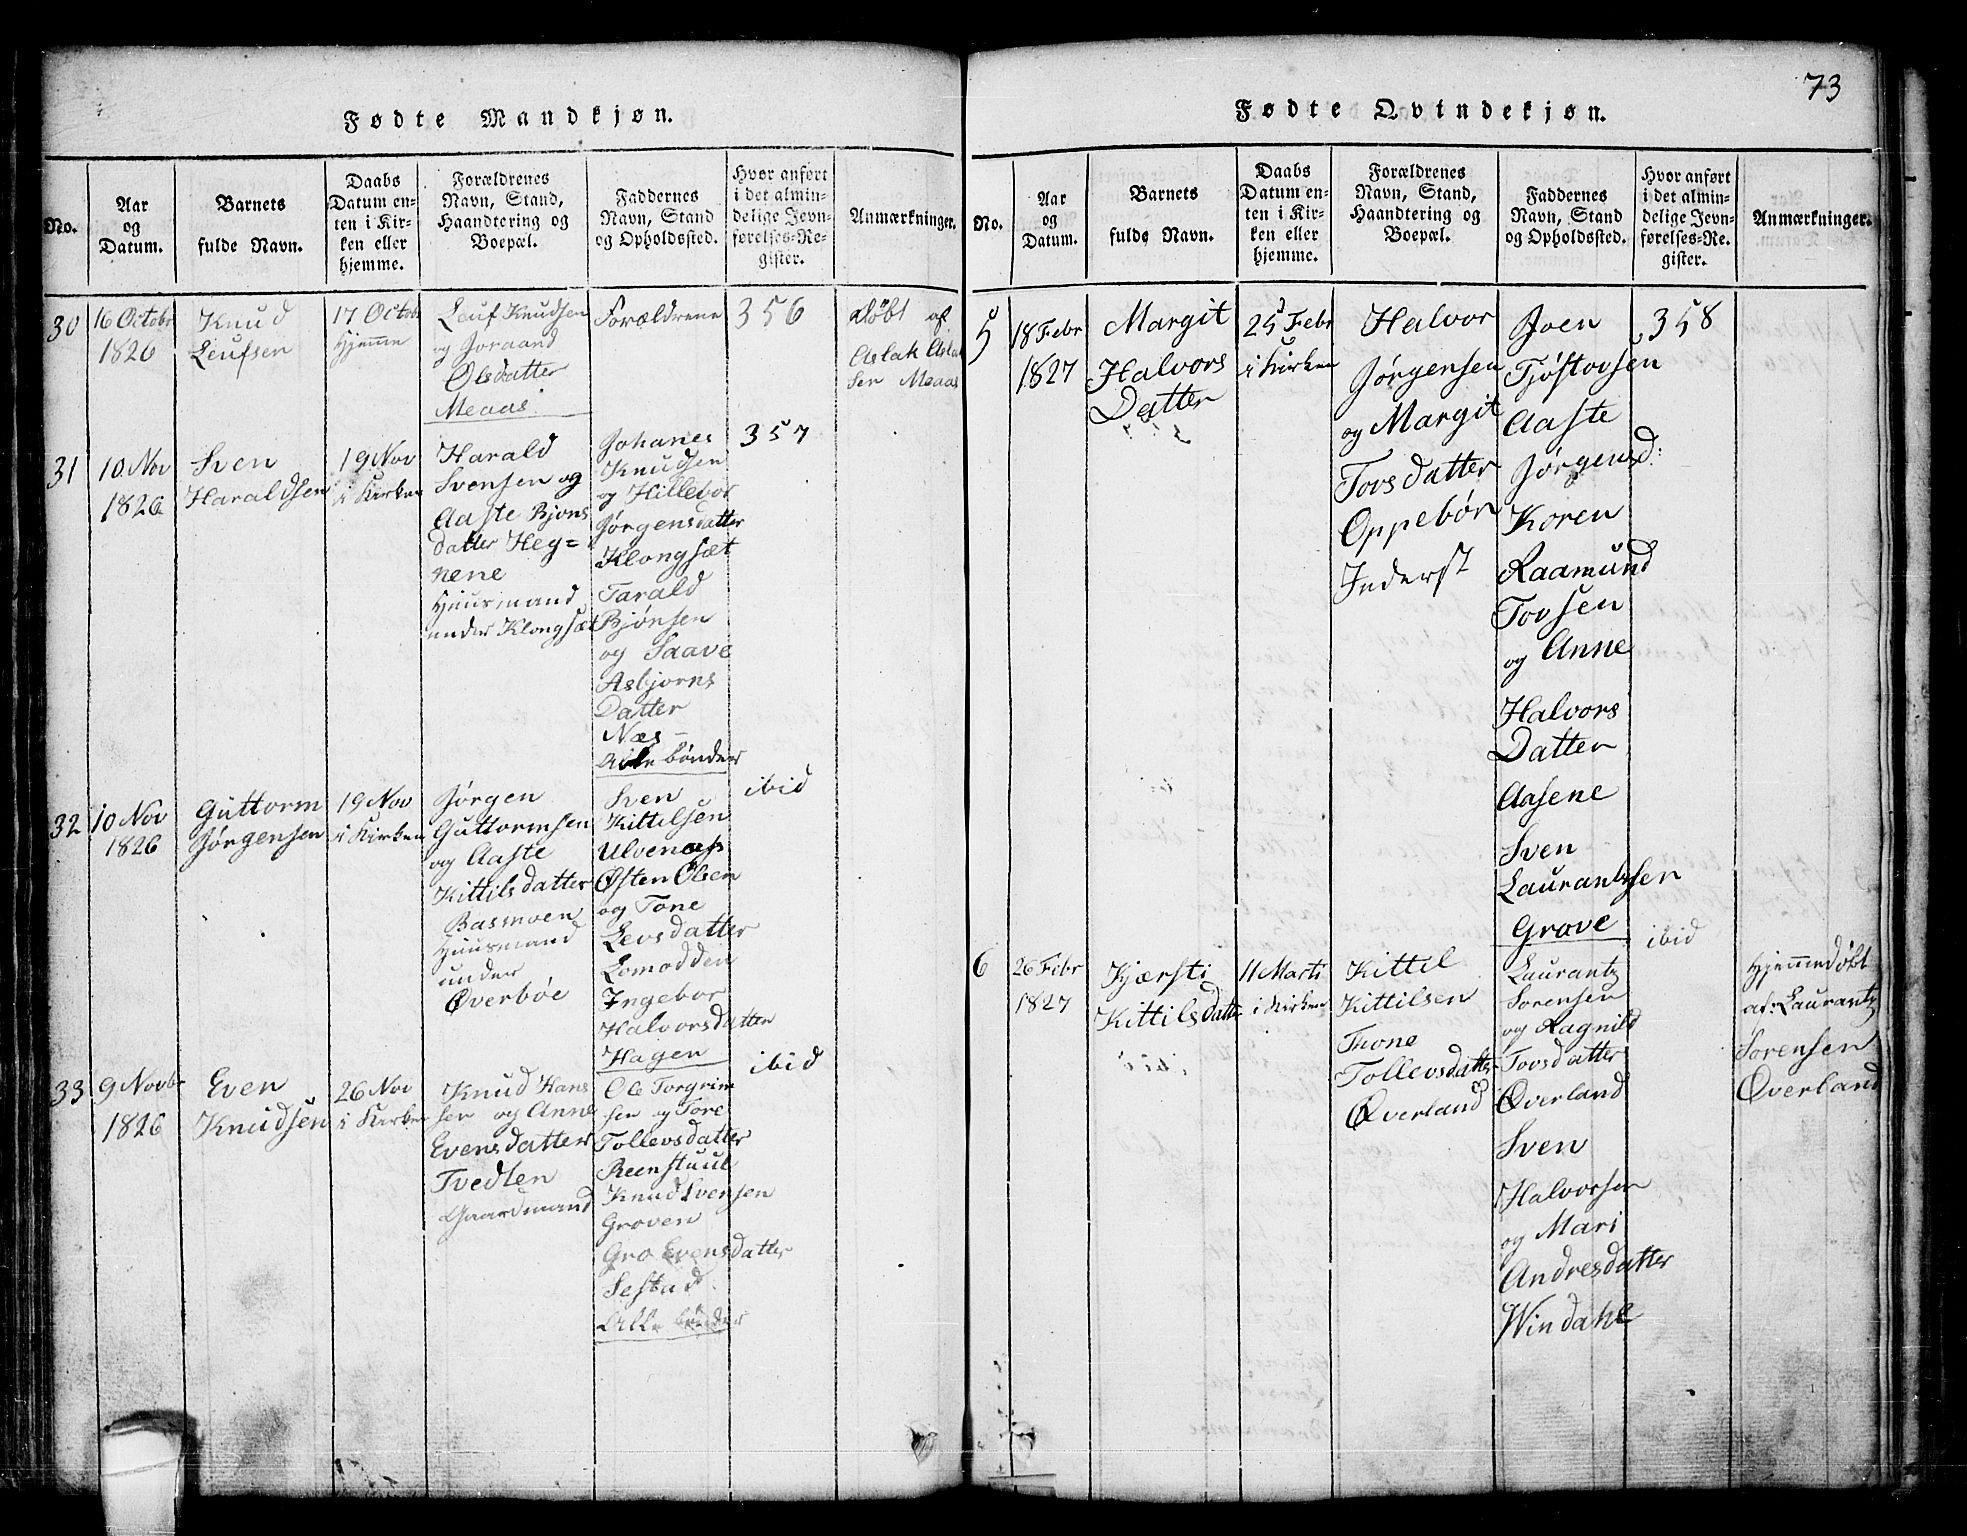 73
Fødte Mandkjøn.
No.
Aar
og
Datum.
Barnets
fulde Navn.
Daabs
Datum en-
ten i Kir-
ken eller
hjemme.
Forældrenes
Navn, Stand,
Haandtering og
Boepæl.
Faddernes
Navn, Stand
og Opholdssted.
Hvor anført
i det almin-
delige Jevn-
førelses-Re-
gister.
Anmærkninger.
30
16 Octobr
1826
Knud
Leufsen
17 Octob
Hjemme
Leuf Knudsen
og Joraand
Olsdatter
Meaas
Forældrene
356
døbt af
Aslak Aslak
sen Meaas
31
10 Nov
1826
Sven
Haraldsen
19 Nov
i Kirken
Harald
Svensen og
Aaste Bjons
datter Heg=
nene
Huusmand
under Klongsæt
Johanes
Knudsen
og Hillebor
Jørgensdatter
Klongsæt
Tarald
Bjønsen
og Saave
Asbjorns
Datter
Næs -
Alle bønder
357
32
10 Nov
1826
Guttorm
Jørgensen
19 Nov
i Kirken
Jørgen
Guttormsen
og Aaste
Kittilsdatter
Basmoen
Huusmand
under
Øverbøe
Sven
Kittilsen
Ulvenæs
Østen Olsen
og Tone
Levsdatter
Lomodden
Ingebor
Halvorsdatter
Hagen
ibid
33
9 Novbr
1826
Even
Knudsen
26 Nov
i Kirken
Knud Hans
sen og Anne
Evensdatter
Tvedten
Gaardmand
Ole Torgrim
sen og Tore
Tollevsdatter
Reenstuul
Knud Svensen
Groven
Gro Evensdatter
Sestad
Alle bønder
ibid
Fødte Qvindekjøn.
No.
Aar
og
Datum.
Barnets
fulde Navn.
Daabs
Datum en-
ten i Kir-
ken eller
hjemme.
Forældrenes
Navn, Stand,
Haandtering og
Boepæl.
Faddernes
Navn, Stand
og Opholdssted.
Hvor anført
i det almin-
delige Jevn-
førelses-Re-
gister.
Anmærkninger.
5
18 Febr
1827
Margit
Halvors
Datter
25 Febr
i Kirken
Halvor
Jørgensen
og Margit
Tovsdatter
Oppebøn
Inderst
Joen
Tjøstovsen
Aaste
Jørgensd:
Koren
Raamund
Tovsen
og Anne
Halvors
Datter
Aasene
Sven
Laurantzsen
Grove
358
6
26 Febr
1827
Kjærsti
Kittilsdatter
11 Marti
i Kirken
Kittil
Kittilsen
Thone
Tollevsdatter
Øverland
Laurantz
Sorensen
og Ragnild
Tovsdatter
Øverland
Sven
Halvorsen
og Mari
Andresdatter
Windahl
ibid
Hjemmedøbt
af: Laurantz
Sorensen
Øverland